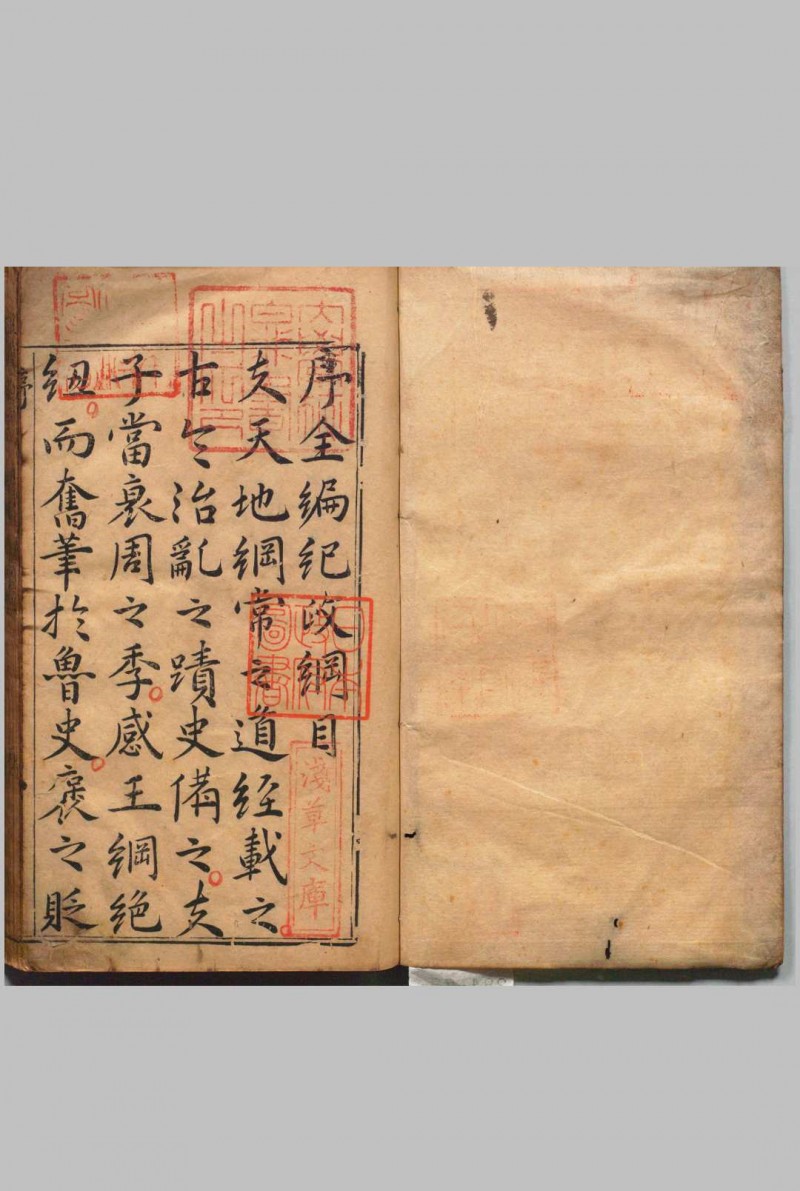 序全編紀政綱目
夫天地綱常之道經載之
古今治亂之蹟史備之夫
子當衰周之季感王綱絶
紐而奮筆於魯史褒之貶
序
淺草文庫
日本政府圖書